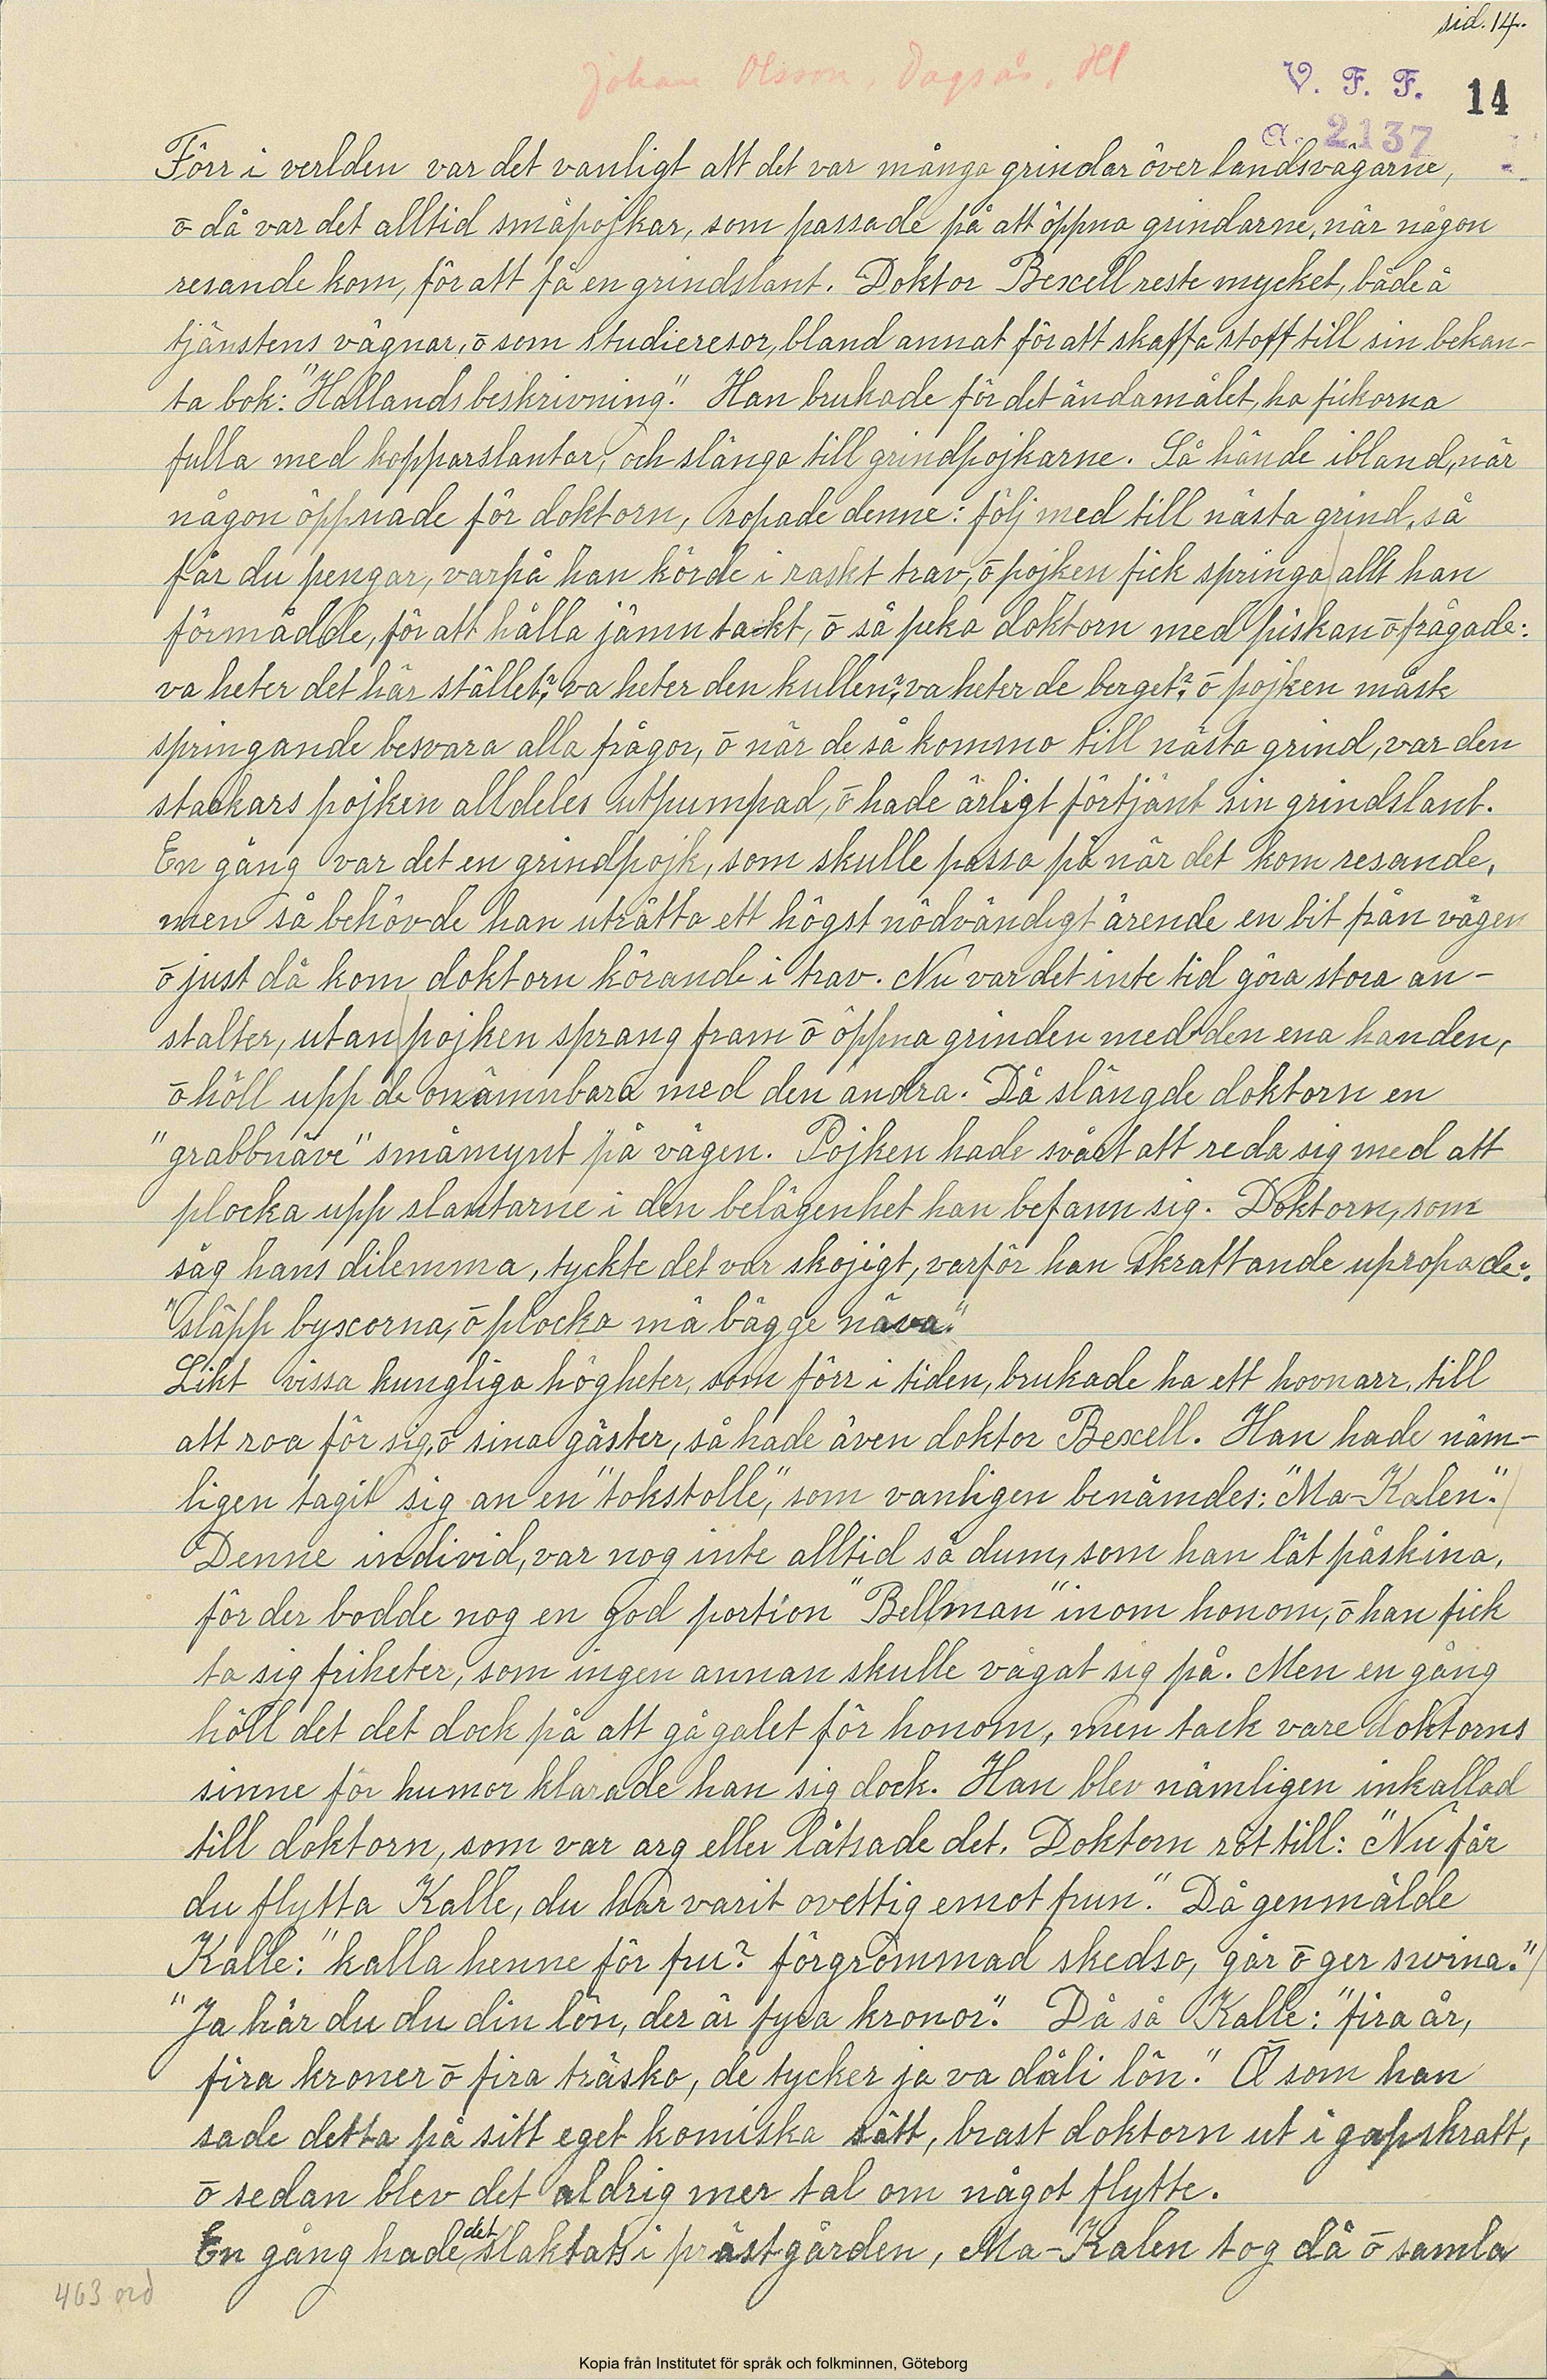 sid. 14.
Johan Olsson, Dagsås, Hl
V. F. F. 14
a. 2137
Förr i verlden var det vanligt att det var många grindar över landsvägarne,
ō då var det alltid småpojkar, som passade på att öppna grindarne, när någon
resande kom, för att få en grindslant. Doktor Bexell reste mycket, både å
tjänstens vägnar, ō som studieresor, bland annat för att skaffa stoff till sin bekan-
ta bok: "Hallands beskrivning". Han brukade för det ändamålet, ha fickorna
fulla med kopparslantar, och slänga till grindpojkarne. Så hände ibland, när
någon öppnade för doktorn, ropade denne: följ med till nästa grind, så
får du pengar, varpå han körde i raskt trav, ō pojken fick springa allt han
förmådde, för att hålla jämn takt, ō så peka doktorn med piskan ō frågade:
va heter det här stället?, va heter den kullen?, va heter de berget?, ō pojken måste
springande besvara alla frågor, ō när de så kommo till nästa grind, var den
stackars pojken alldeles utpumpad, ō hade ärligt förtjänt sin grindslant.
En gång var det en grindpojk, som skulle passa på när det kom resande,
men så behövde han uträtta ett högst nödvändigt ärende en bit från vägen
ō just då kom doktorn körande i trav. Nu var det inte tid göra stora an-
stalter, utan pojken sprang fram ō öppna grinden med den ena handen,
ō höll upp de onämnbara med den andra. Då slängde doktorn en
"grabbnäve" småmynt på vägen. Pojken hade svårt att reda sig med att
plocka upp slantarne i den belägenhet han befann sig. Doktorn, som
såg hans dilemma, tyckte det var skojigt, varför han skrattande upropade:
"släpp byxorna, ō plocka må bägge näva."
Likt vissa kungliga högheter, som förr i tiden, brukade ha ett hovnarr, till
att roa för sig, ō sina gäster, så hade även doktor Bexell. Han hade näm-
ligen tagit sig an en "tokstolle", som vanligen benämdes: "Ma-Kalen".
Denne individ, var nog inte alltid så dum, som han lät påskina,
för der bodde nog en god portion "Bellman" inom honom, ō han fick
ta sig friheter, som ingen annan skulle vågat sig på. Men en gång
höll det det dock på att gå galet för honom, men tack vare doktorns
sinne för humor klarade han sig dock. Han blev nämligen inkallad
till doktorn, som var arg eller låtsade det. Doktorn röt till: "Nu får
du flytta Kalle, du har varit ovettig emot frun". Då genmälde
Kalle: "kalla henne för fru? förgrömmad skedso, går ō ger svina."
"Ja här du du din lön, der är fyra kronor". Då så Kalle: "fira år,
fira kroner ō fira träsko, de tycker ja va dåli lön." Ō som han
sade detta på sitt eget komiska sätt, brast doktorn ut i gapskratt,
ō sedan blev det aldrig mer tal om något flytte.
En gång hade det slaktats i prästgården, Ma-Kalen tog då ō samla
463 ord
Kopia från Institutet för språk och folkminnen, Göteborg